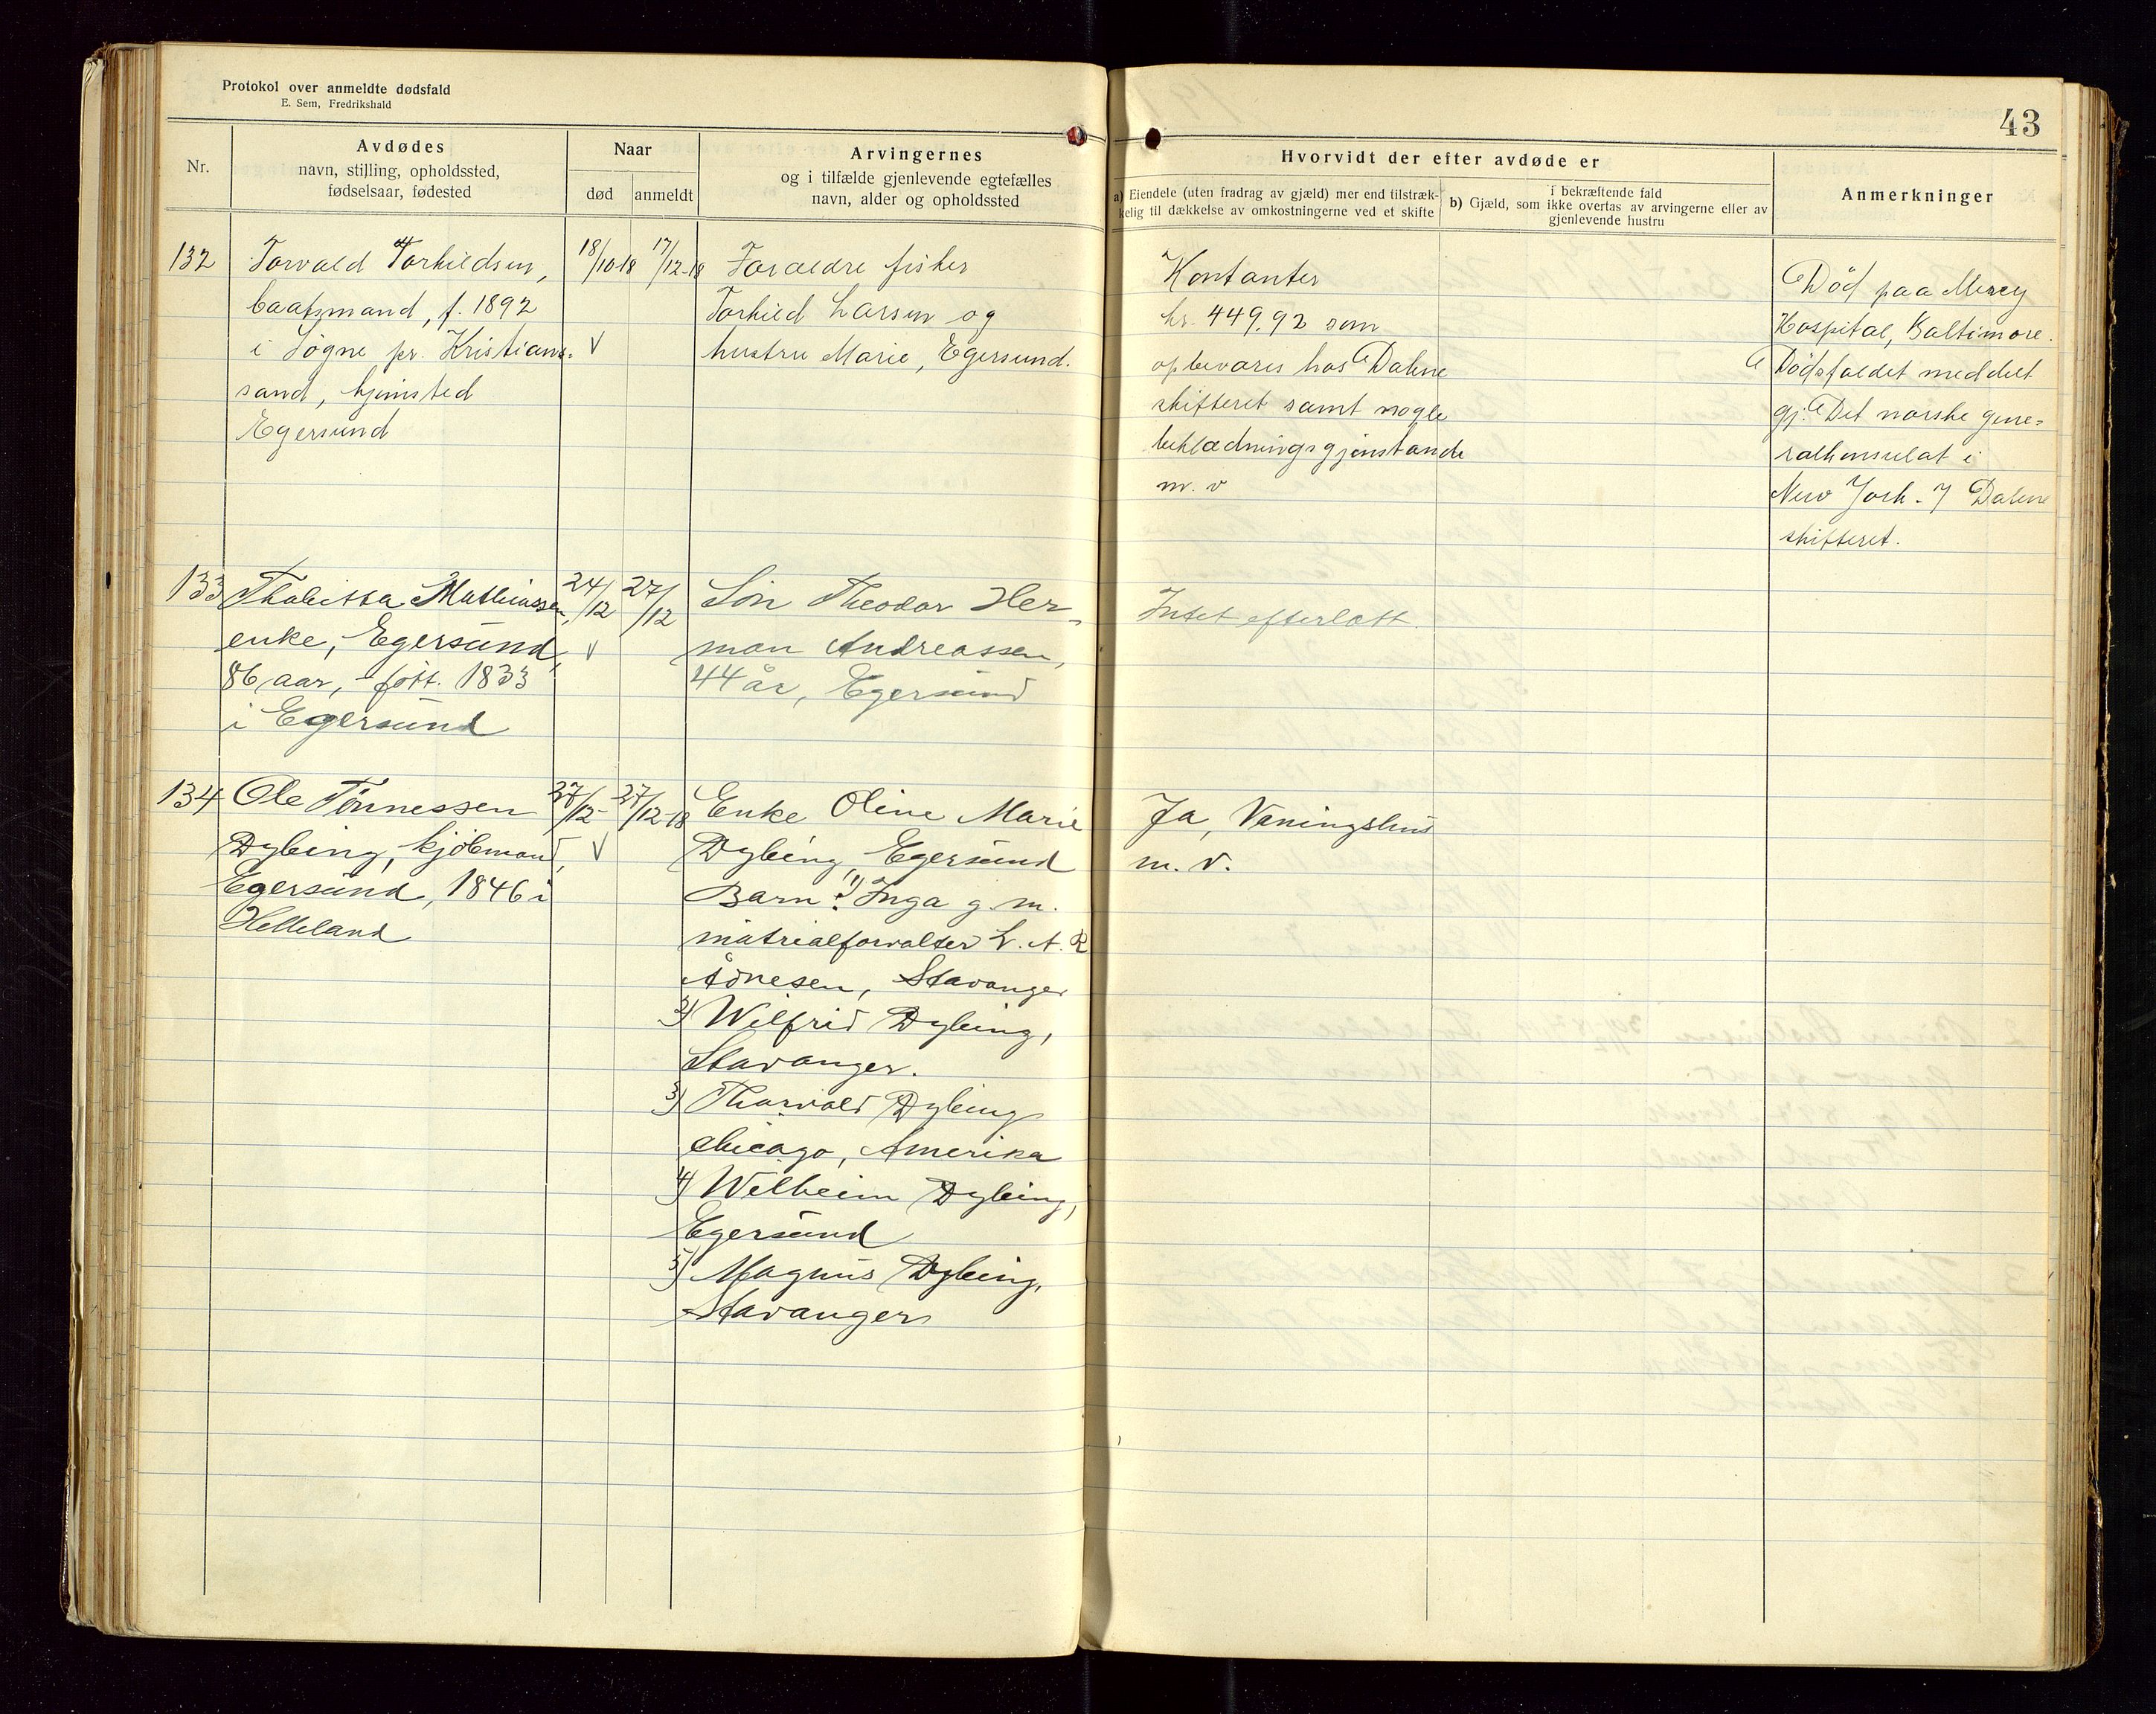 Protokol over anmeldte dødsfald
E. Sem, Fredrikshald
43
Nr.
Avdødes
navn, stilling, opholdssted,
fødselsaar, fødested
Naar
død
anmeldt
Arvingernes
og i tilfælde gjenlevende egtefælles
navn, alder og opholdssted
Hvorvidt der efter avdøde er
a) Eiendele (uten fradrag av gjæld) mer end tilstræk-
kelig til dækkelse av omkostningerne ved et skifte
i bekræftende fald
b) Gjæld, som ikke overtas av arvingerne eller av
gjenlevende hustru
Anmerkninger
132
Torvald Torkildsen,
baatsmand, f. 1892
i Søgne pr. Kristian-
sand, hjemsted
Egersund
18/10-18
17/12-18
Forældre fisker
Torkild Larsen og
hustru Marie, Egersund.
Kontanter
kr. 449,92 som
opbevares hos Dalene
skifteret samt nogle
beklædningsgjenstande
m. v
Død paa Mercy
Hospital, Baltimore.
Dødsfaldet meddelt
gj. Det norske gene-
ralkonsulat i
New York - 7 Dalene
skifteret.
133
Thabitta Mathiassen,
enke, Egersund,
86 aar, født. 1833
i Egersund
24/12
27/12
V
Søn Theodor Her-
man Andreassen,
44 år, Egersund
Intet efterlatt.
134
Ole Tønnessen
Dybing, kjøbmand,
Egersund, 1846 i
Helleland
27/12-18
V
Enke Oline Marie
Dybing, Egersund
Barn: 1) Inga g. m.
matrialforvalter L. A. R
Ådnesen, Stavanger
2) Wilfrid Dybing,
Stavanger.
3) Thorvald Dybing
Chicago, Amerika
4) Wilhelm Dybing,
Egersund
5) Magnus Dybing,
Stavanger
Ja, Vaningshus
m. v.